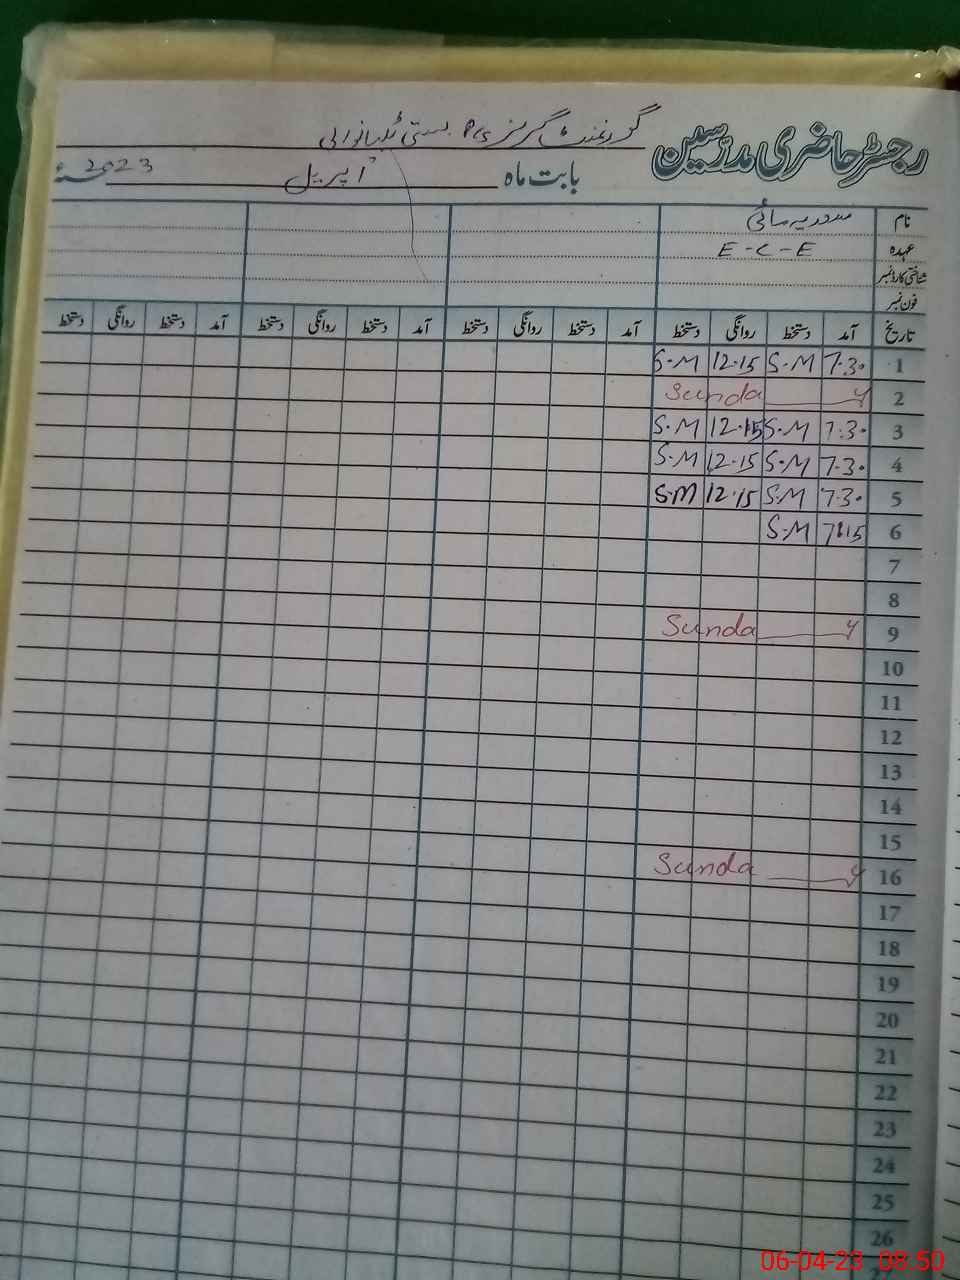 رجسٹر حاضری مدرسین گورنمنٹ گرلز P/S بستی
بابت ماہ اپریل 2023ء
نام سعدیہ
عہدہ E-C-E
شناختی کارڈ نمبر
فون نمبر
تاریخ آمد دستخط روانگی دستخط آمد دستخط روانگی دستخط آمد دستخط روانگی دستخط آمد دستخط روانگی دستخط
1 7-30 S-M 12-15 S-M
2 Sunday
3 7:30 S-M 12-15 S-M
4 7-30 S-M 12-15 S-M
5 7-30 S-M 12-15 S-M
6 7:15 S-M
7
8
9 Sunday
10
11
12
13
14
15
16 Sunday
17
18
19
20
21
22
23
24
25
26
06-04-23 08:50